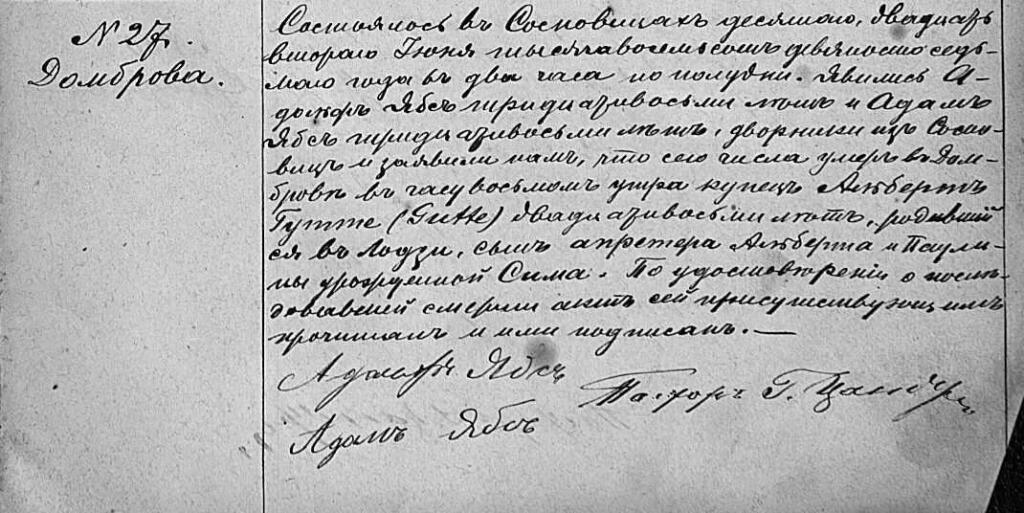 № 27.
Домброва.
Состоялось въ Сосновицахъ десятаго, двадцать
втораго Іюня тысяча восемьсотъ девяносто седь-
маго года въ два часа по полудни. Явились А-
дольфъ Ябсъ тридцативосьми летъ и Адамъ
Ябсъ тридцативосьми лѣтъ, дворники изъ Сосно-
вицъ и заявили намъ, что сего числа умеръ въ Дом-
бровѣ въ часу восьмомъ утра купецъ Альбертъ
Гутте (Gutte) двадцативосьми лѣтъ, родивший
ся въ Лодзи, сынъ апретера Альберта и Паули-
ны урожденной Сима. По удостовѣреніи о послѣ-
довавшей смерти актъ сей присутствующимъ
прочитанъ и ими подписанъ. —
Адольфъ Ябсъ
Пасторъ Г.
Адамъ Ябсъ